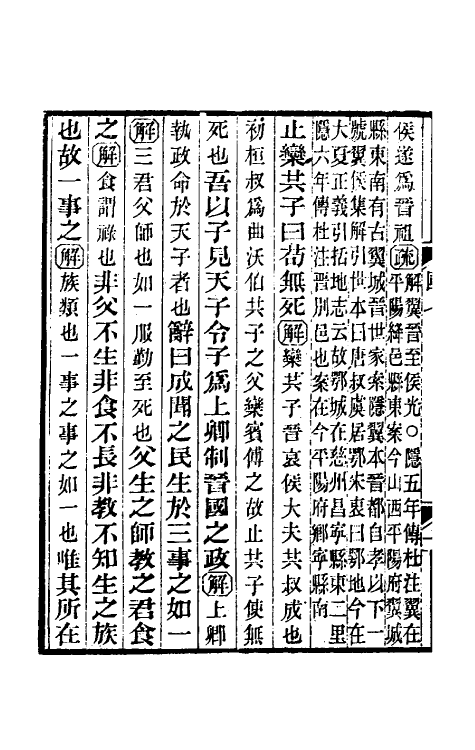 侯遂爲晉祖疏解翼晉至侯光○隱五年傳杜注翼在
平陽絳邑縣東案今山西平陽府翼城
縣東南有古翼城晉世家索隱翼本晉都自孝以下一
號翼侯集解引世本曰唐叔虞居鄂宋衷曰鄂地今在
大夏正義引括地志云故鄂城在慈州昌寧縣東二里
隱六年傳杜注晉別邑也案在今平陽府鄉寧縣南
止欒共子曰苟無死解欒共子晉哀侯大夫共叔成也
初桓叔爲曲沃伯共子之父欒賓傅之故止共子使無
死也吾以子見天子令子爲上卿制晉國之政解上卿
執政命於天子者也辭曰成聞之民生於三事之如一
解三君父師也如一服勤至死也父生之師教之君食
之解食謂祿也非父不生非食不長非教不知生之族
也故一事之解族類也一事之事之如一也唯其所在